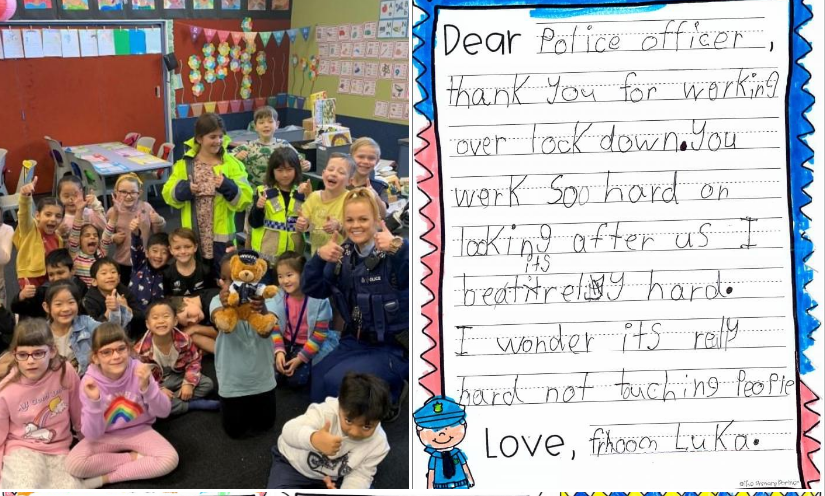 Dear Police officer,
thank you for working
over lock down. You
work Soo hard on
looking after us I
its
reley hard.
I wonder its relly
hard not tuching PeoPle
Love, frhoom LuKa.
POLICE